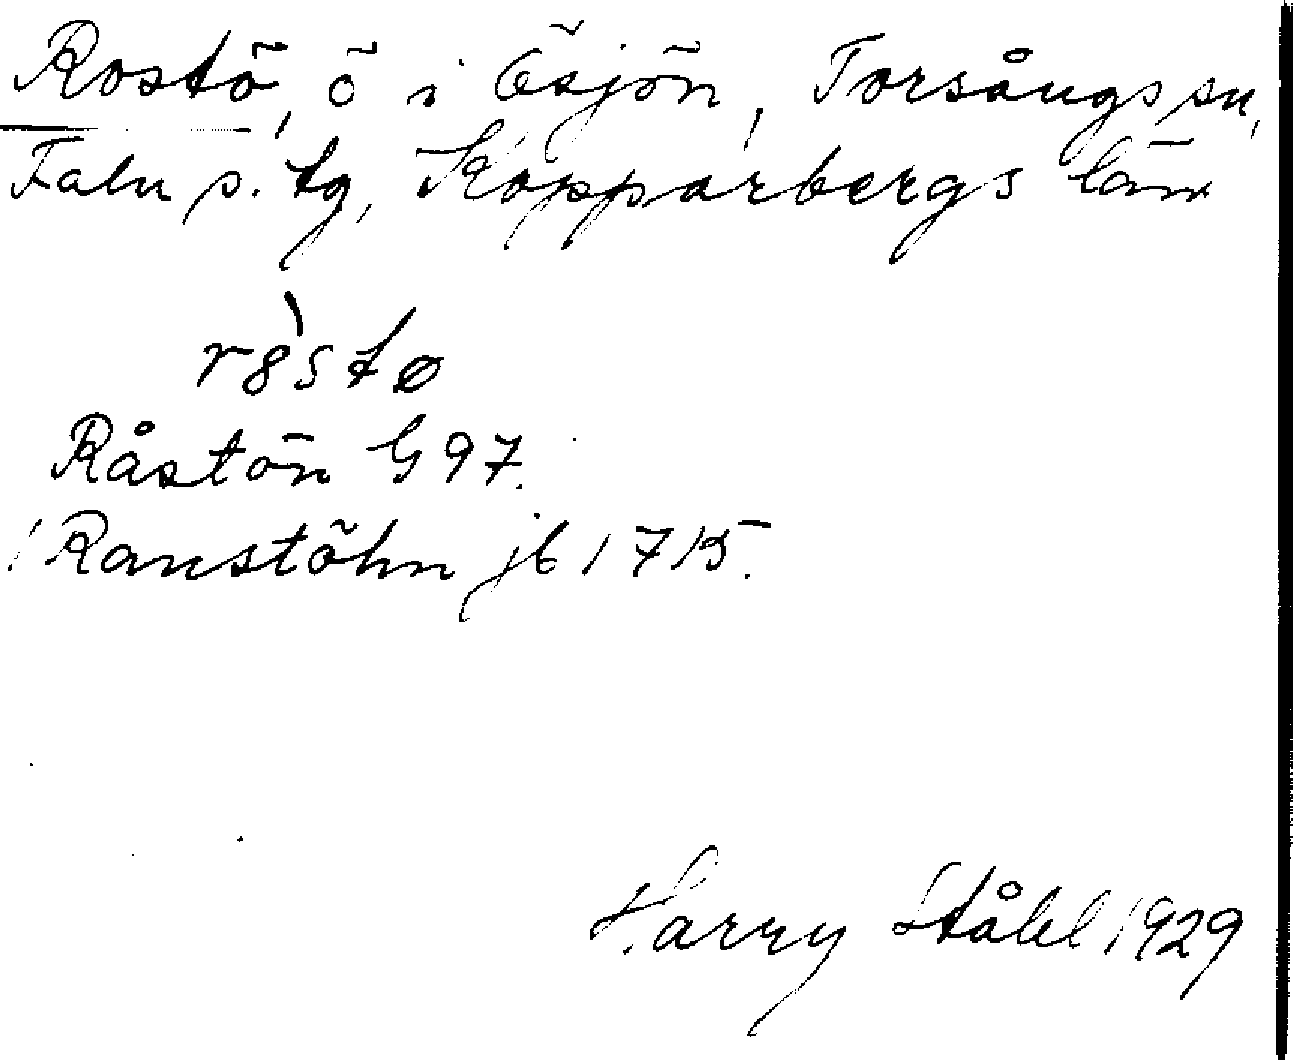 Rostö, ö i Ösjön, Torsångs sn,
Falu s. tg, Kopparbergs län
rȣ̀stø
Råstön G 97.
Ranstöhn jb 1715.
Harry Ståhl 1929